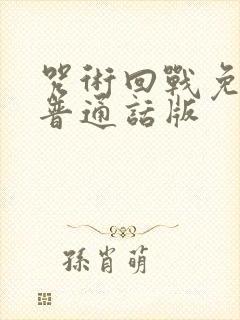 咒術回戰免
普通話版
孫肖萌